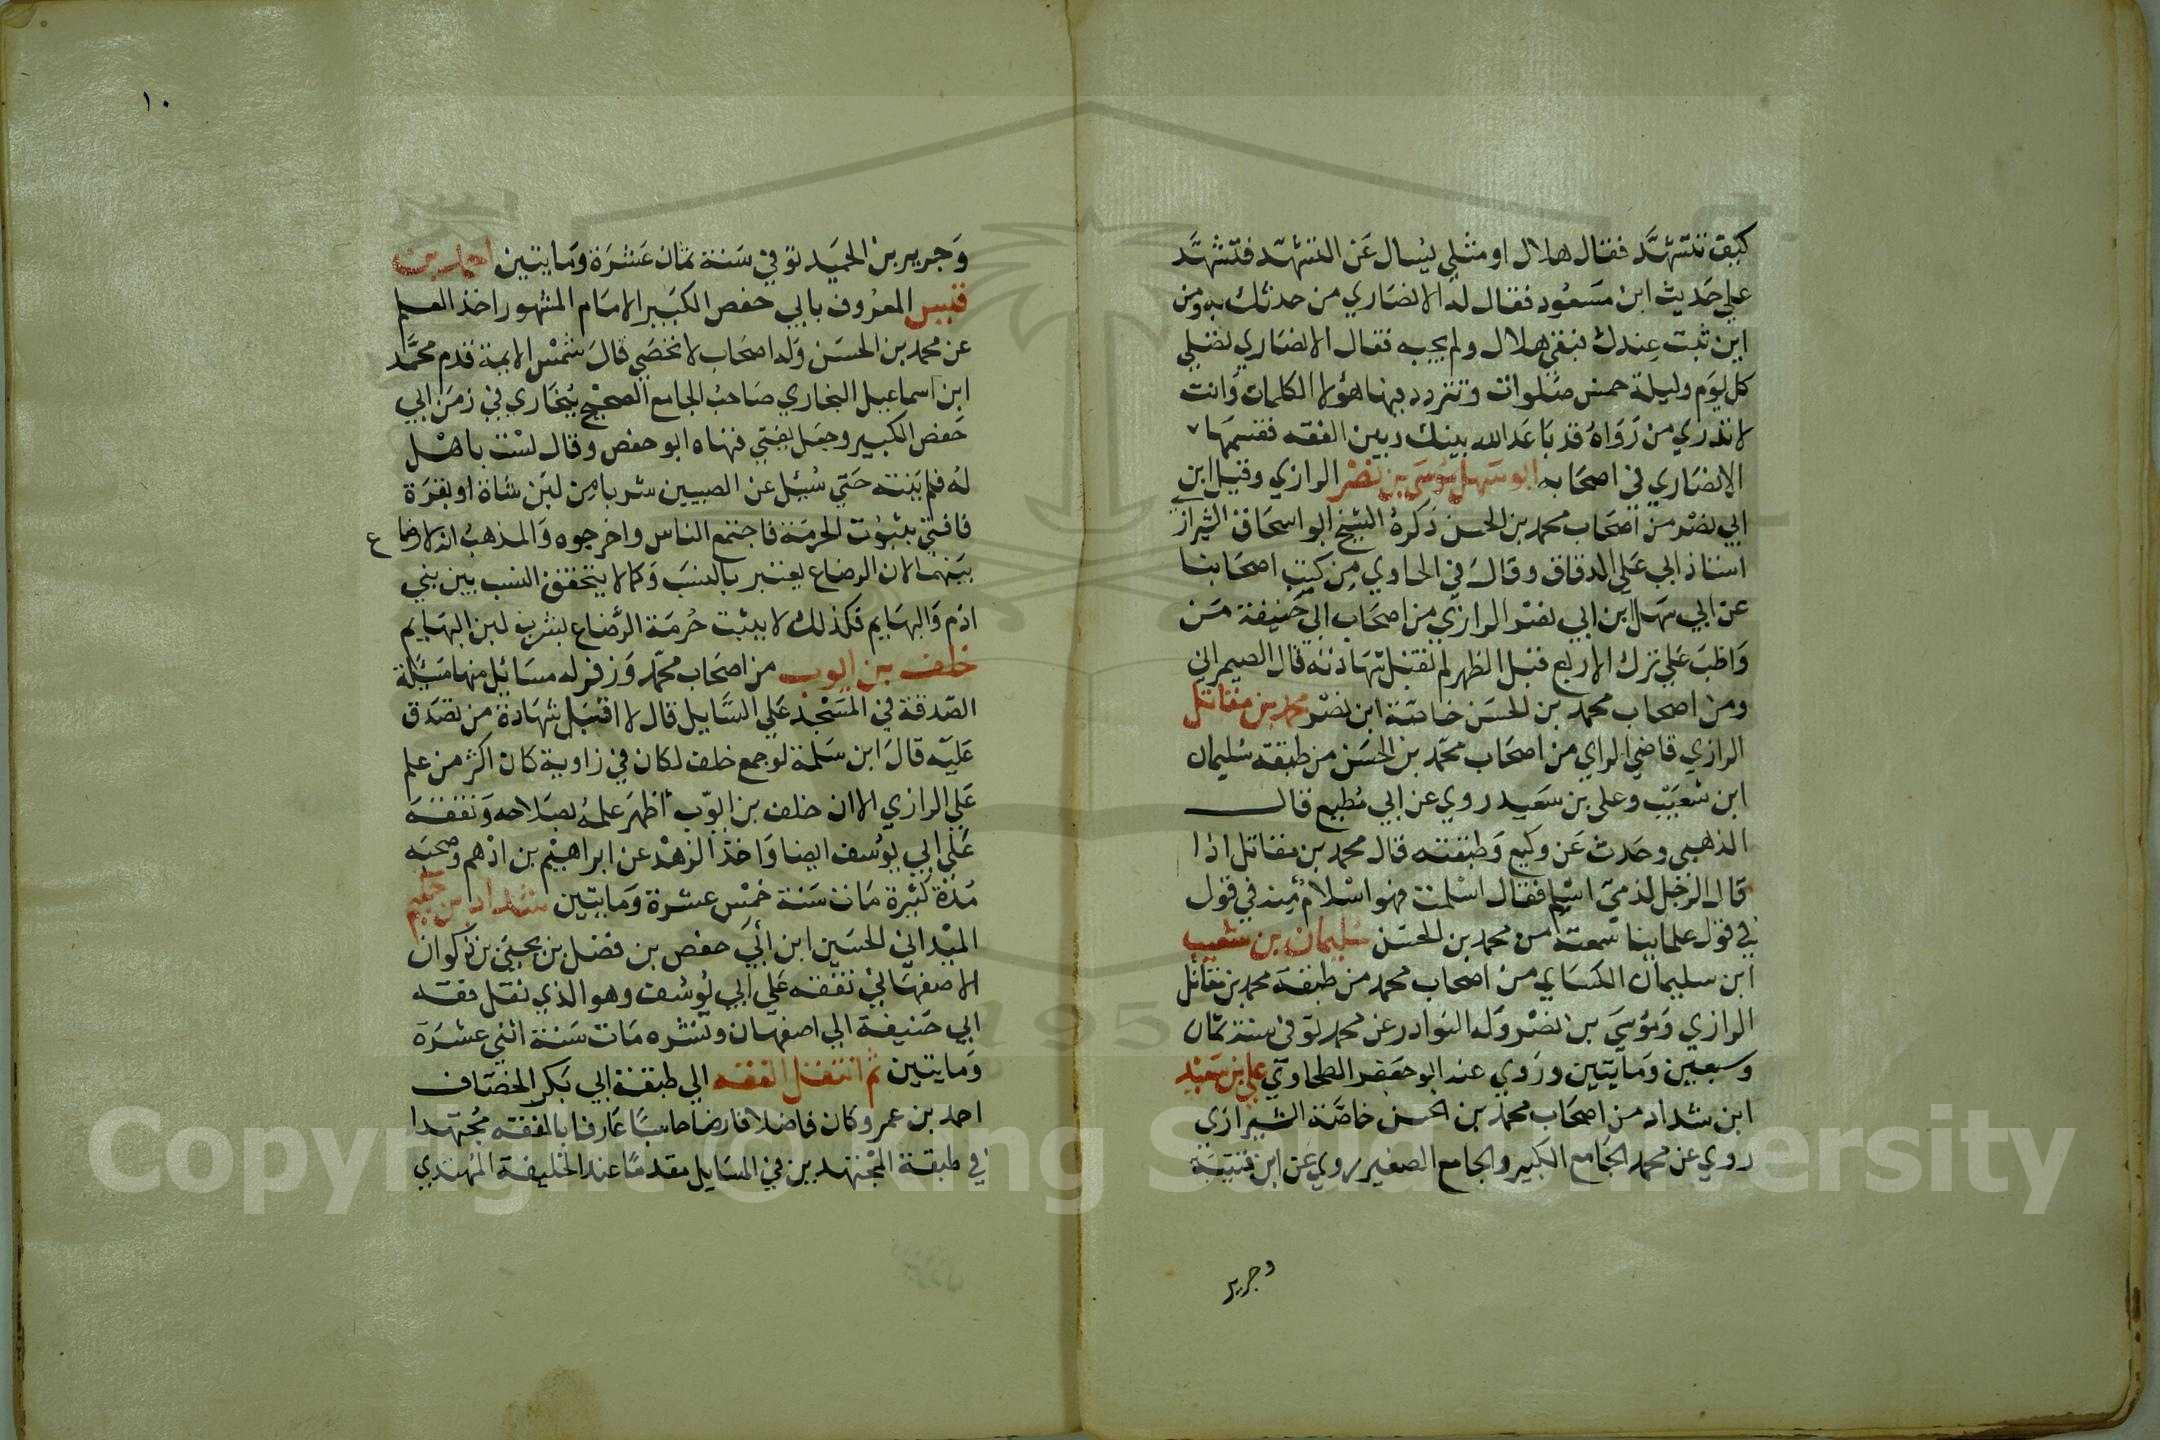 كيف تتشهد فقال هلال او مثلي يسال عن التشهد فتشهد
علي حديث ابن مسعود فقال له الانصاري من حدثك به ومن
اين ثبت عندك فبقي هلال ولم يجبه فقال الانصاري تصلي
كل يوم وليلة خمس صلوات وتتردد فيها هؤلا الكلمات وانت
لا تدري من رواه قد باعد الله بينك وبين الفقه فقسمها
الانصاري في اصحابه ابو سهل موسي بن نصر الرازي وقيل ابن
ابي نصر من اصحاب محمد بن الحسن ذكره الشيخ ابو اسحاق الشيرازي
استاذ ابي علي الدقاق وقال في الحاوي من كتب اصحابنا
عن ابي سهل ابن ابي نصر الرازي من اصحاب ابي حنيفة من
واظب علي ترك الاربع قبل الظهر لم تقبل شهادته قال الصيمراني
ومن اصحاب محمد بن الحسن خاصة ابن نصر محمد بن مقاتل
الرازي قاضي الراي من اصحاب محمد بن الحسن من طبقة سليمان
ابن شعيب وعلي بن سعيد روي عن ابي مطيع قال
الذهبي وحدث عن وكيع وطبقته قال محمد بن مقاتل اذا
قال الرجل لذمي اسلم فقال اسلمت فهو اسلام منه في قول
في قول علماينا سمعته من محمد بن الحسن سليمان بن شعيب
ابن سليمان الكساي من اصحاب محمد من طبقة محمد بن مقاتل
الرازي وموسي بن نصر وله النوادر عن محمد توفي سنة ثمان
وسبعين ومايتين وروي عنه ابو جعفر الطحاوي علي بن سعيد
ابن شداد من اصحاب محمد بن الحسن خاصة الشيرازي
روي عن محمد الجامع الكبير والجامع الصغير روي عن ابن قتيبة
وجرير
١٠
وجرير بن الحميد توفي سنة ثمان عشرة ومايتين احمد بن
قيس المعروف بابي حفص الكبير الامام المشهور اخذ العلم
عن محمد بن الحسن وله اصحاب لا تحصي قال شمس الايمة قدم محمد
ابن اسماعيل البخاري صاحب الجامع الصحيح بخاري في زمن ابي
حفص الكبير وجعل يفتي فنهاه ابو حفص وقال لست باهل
له فلم ينته حتي سئل عن الصبيين شربا من لبن شاة او بقرة
فافتي بثبوت الحرمة فاجتمع الناس واخرجوه والمذهب انه لا رضاع
بينهما لان الرضاع يعتبر بالنسب وكما لا يتحقق النسب بين بني
ادم والبهايم فكذلك لا يثبت حرمة الرضاع بشرب لبن البهايم
خلف بن ايوب من اصحاب محمد وزفر له مسايل منها مسئلة
الصدقة في المسجد علي السايل قال لا اقبل شهادة من تصدق
عليه قال ابن سلمة لو جمع خلف لكان في زاوية كان اكثر من علم
علي الرازي الا ان خلف بن ايوب اظهر علمه بصلاحه وتفقه
علي ابي يوسف ايضا واخذ الزهد عن ابراهيم بن ادهم وصحبه
مدة كثيرة مات سنة خمس عشرة ومايتين شداد بن حكيم
الميداني الحسين ابن ابي حفص بن فضل بن يحيي بن ذكوان
الاصفهاني تفقه علي ابي يوسف وهو الذي نقل فقه
ابي حنيفة الي اصفهان ونشره مات سنة اثني عشرة
ومايتين ثم انتقل الفقه الي طبقة ابي بكر الخصاف
احمد بن عمر وكان فاضلا فارضا حاسبا عارفا بالفقه مجتهدا
في طبقة المجتهدين في المسايل مقدما عند الخليفة المهتدي
Copyright © King Saud University
195